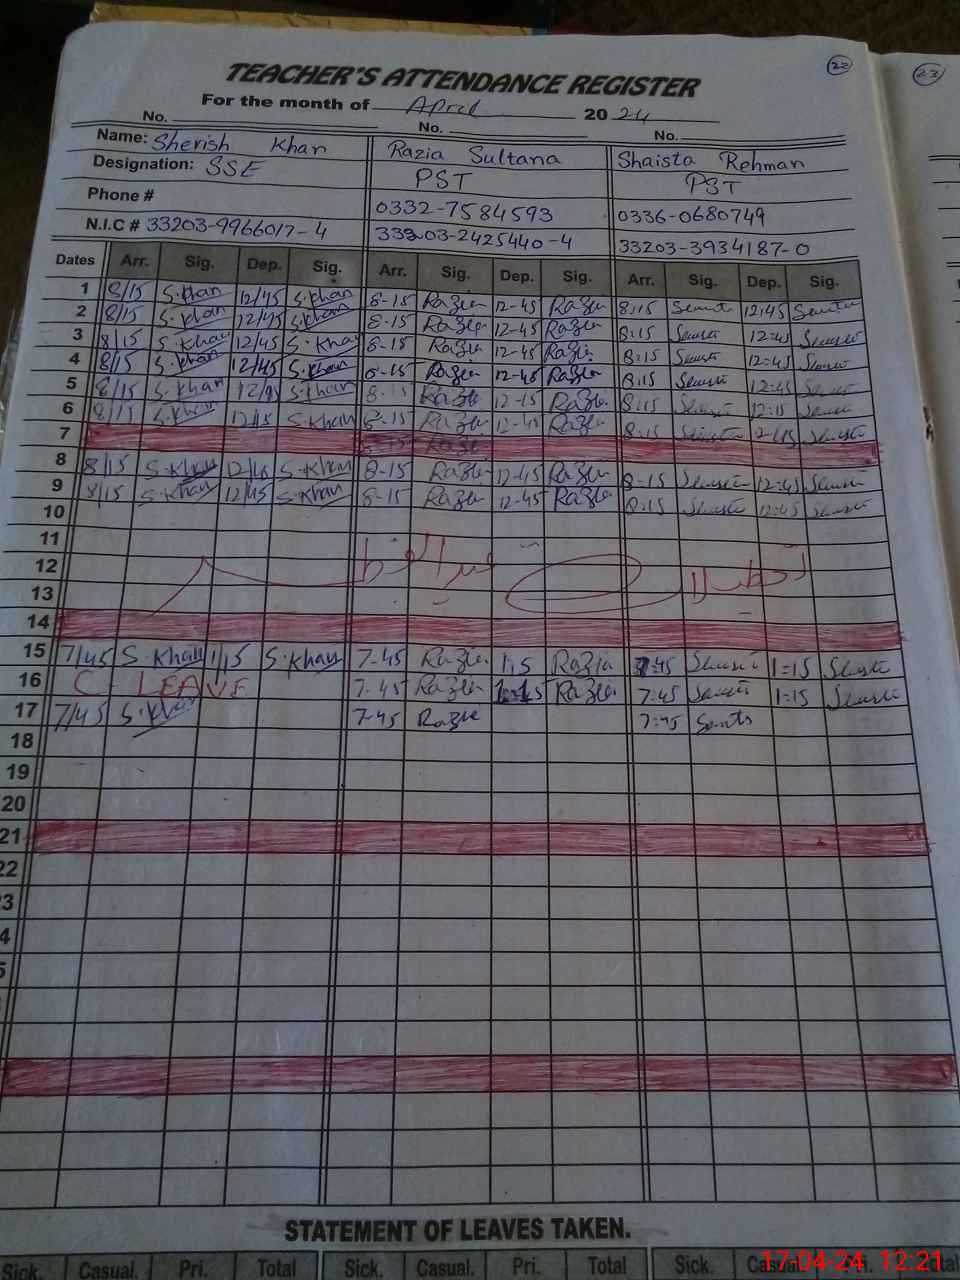 22
23
TEACHER'S ATTENDANCE REGISTER
For the month of April 20 24
No. No. No.
Name: Sherish Khan Razia Sultana Shaista Rehman
Designation: SSE PST PST
Phone # 0332-7584593 0336-0680749
N.I.C # 33203-9966017-4 33203-2425440-4 33203-3934187-0
Dates Arr. Sig. Dep. Sig. Arr. Sig. Dep. Sig. Arr. Sig. Dep. Sig.
1 8/15 S.Khan 12/45 S.Khan 8-15 Razia 12-45 Razia 8:15 12:45
2 8/15 S.Khan 12/45 S.Khan 8-15 Razia 12-45 Razia 8:15 12:45
3 8/15 S.Khan 12/45 S.Kha 8-15 Razia 12-45 Razia 8:15 12:45
4 8/15 S.Khan 12/45 S.Khan 8-15 Razia 12-45 Razia 8:15 12:45
5 8/15 S.Khan 12/45 S.Khan 8-15 Razia 12-15 Razia 8:15 12:15
6 8/15 S.Khan 12/45 S.Khan 8-15 Razia 12-45 Razia 8:15 12-45
7
8 8/15 S.Khan 12/45 S.Khan 8-15 Razia 12-45 Razia 8-15 12:45
9 8/15 S.Khan 12/45 S.Khan 8-15 Razia 12-45 Razia 8:15 12:45
10
11
12 تعطیلات عید الفطر
13
14
15 7/45 S.Khan 1/15 S.Khan 7-45 Razia 1:15 Razia 7:45 1:15
16 C- LEAVE 7-45 Razia 1-15 Razia 7:45 1:15
17 7/45 S.Khan 7-45 Razia 7:45
18
19
20
21
22
3
4
STATEMENT OF LEAVES TAKEN.
Sick. Casual. Pri. Total Sick. Casual. Pri. Total Sick.
17-04-24 12:21